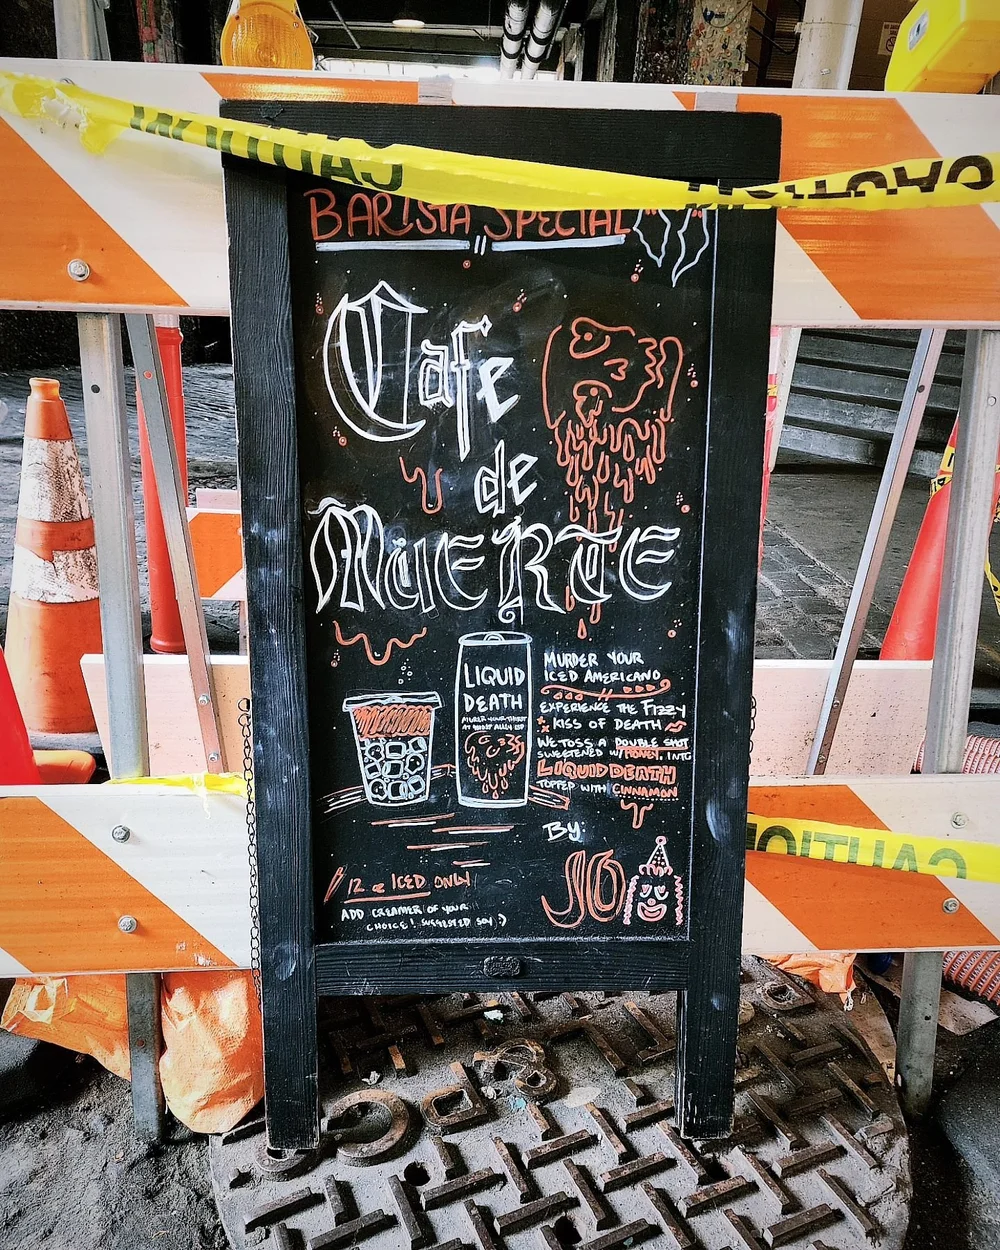 CAUTION
CAUTION
BARISTA SPECIAL
Cafe
de
MUERTE
LIQUID
DEATH
MURDER YOUR
ICED AMERICANO
EXPERIENCE THE FIZZY
KISS OF DEATH
WE TOSS A DOUBLE SHOT
SWEETENED W/ HONEY, INTO
LIQUID DEATH
TOPPED WITH CINNAMON
BY:
JO
12 oz ICED ONLY
ADD CREAMER OF YOUR
CHOICE! SUGGESTED SOY :)
CAUTION